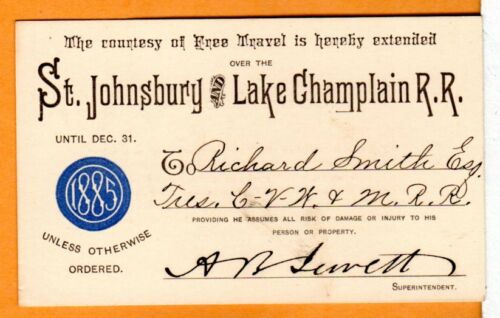 The courtesy of Free Travel is hereby extended
OVER THE
St. Johnsbury AND Lake Champlain R.R.
UNTIL DEC. 31.
1885
UNLESS OTHERWISE
ORDERED.
To Richard Smith Esq
Tres. C-V-W. & M. R. R.
PROVIDING HE ASSUMES ALL RISK OF DAMAGE OR INJURY TO HIS
PERSON OR PROPERTY.
A B Jewett
SUPERINTENDENT.